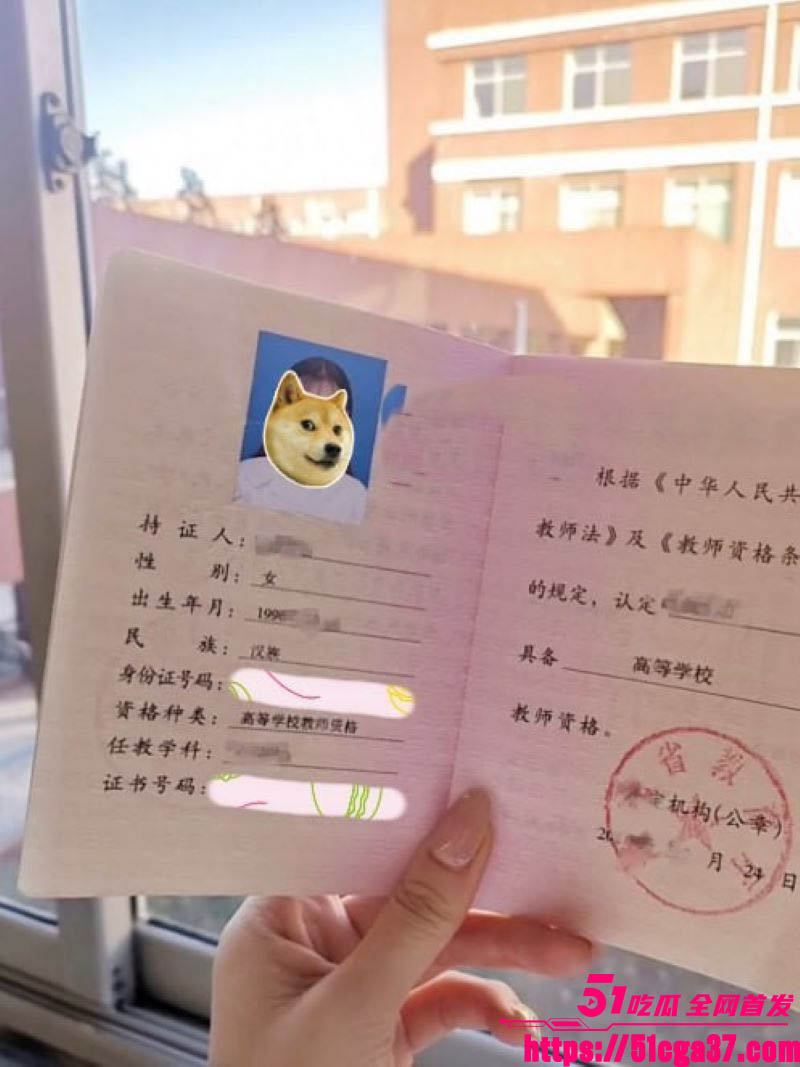 持证人：
性别：女
出生年月：199
民族：汉族
身份证号码：
资格种类：高等学校教师资格
任教学科：
证书号码：
根据《中华人民共
教师法》及《教师资格条
的规定，认定
具备 高等学校
教师资格。
省教
机构(公章)
20 月 24 日
51吃瓜 全网首发
https://51cga37.com